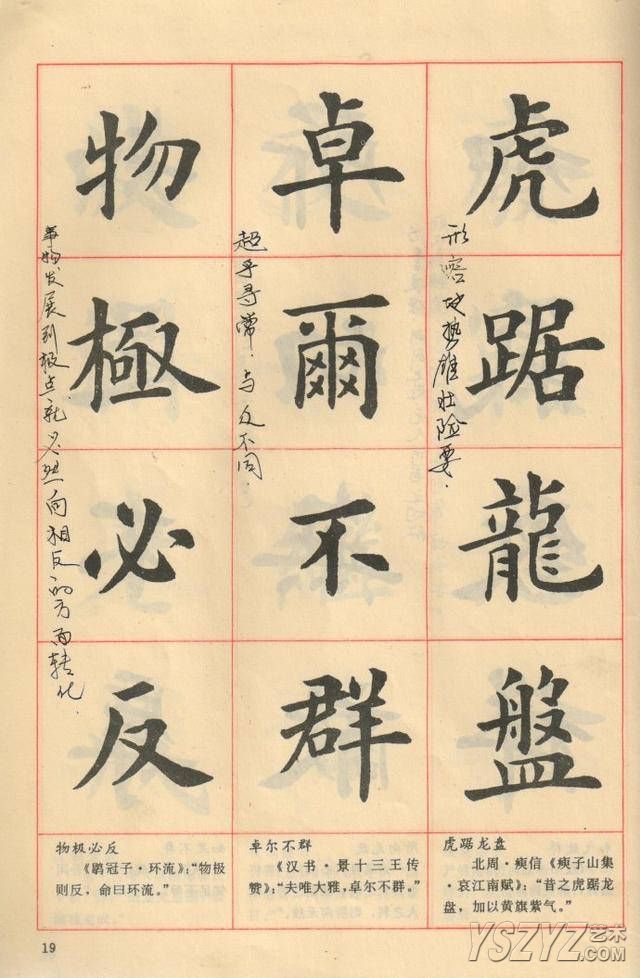 虎踞龍盤
形容地势雄壮险要.
卓爾不群
超乎寻常.与众不同.
物極必反
事物发展到极点就必然向相反的方面转化.
虎踞龙盘
北周·瘐信《瘐子山集
·哀江南赋》：“昔之虎踞龙
盘，加以黄旗紫气。”
卓尔不群
《汉书·景十三王传
赞》：“夫唯大雅，卓尔不群。”
物极必反
《鹖冠子·环流》：“物极
则反，命曰环流。”
19
YSZYZ艺术
.COM